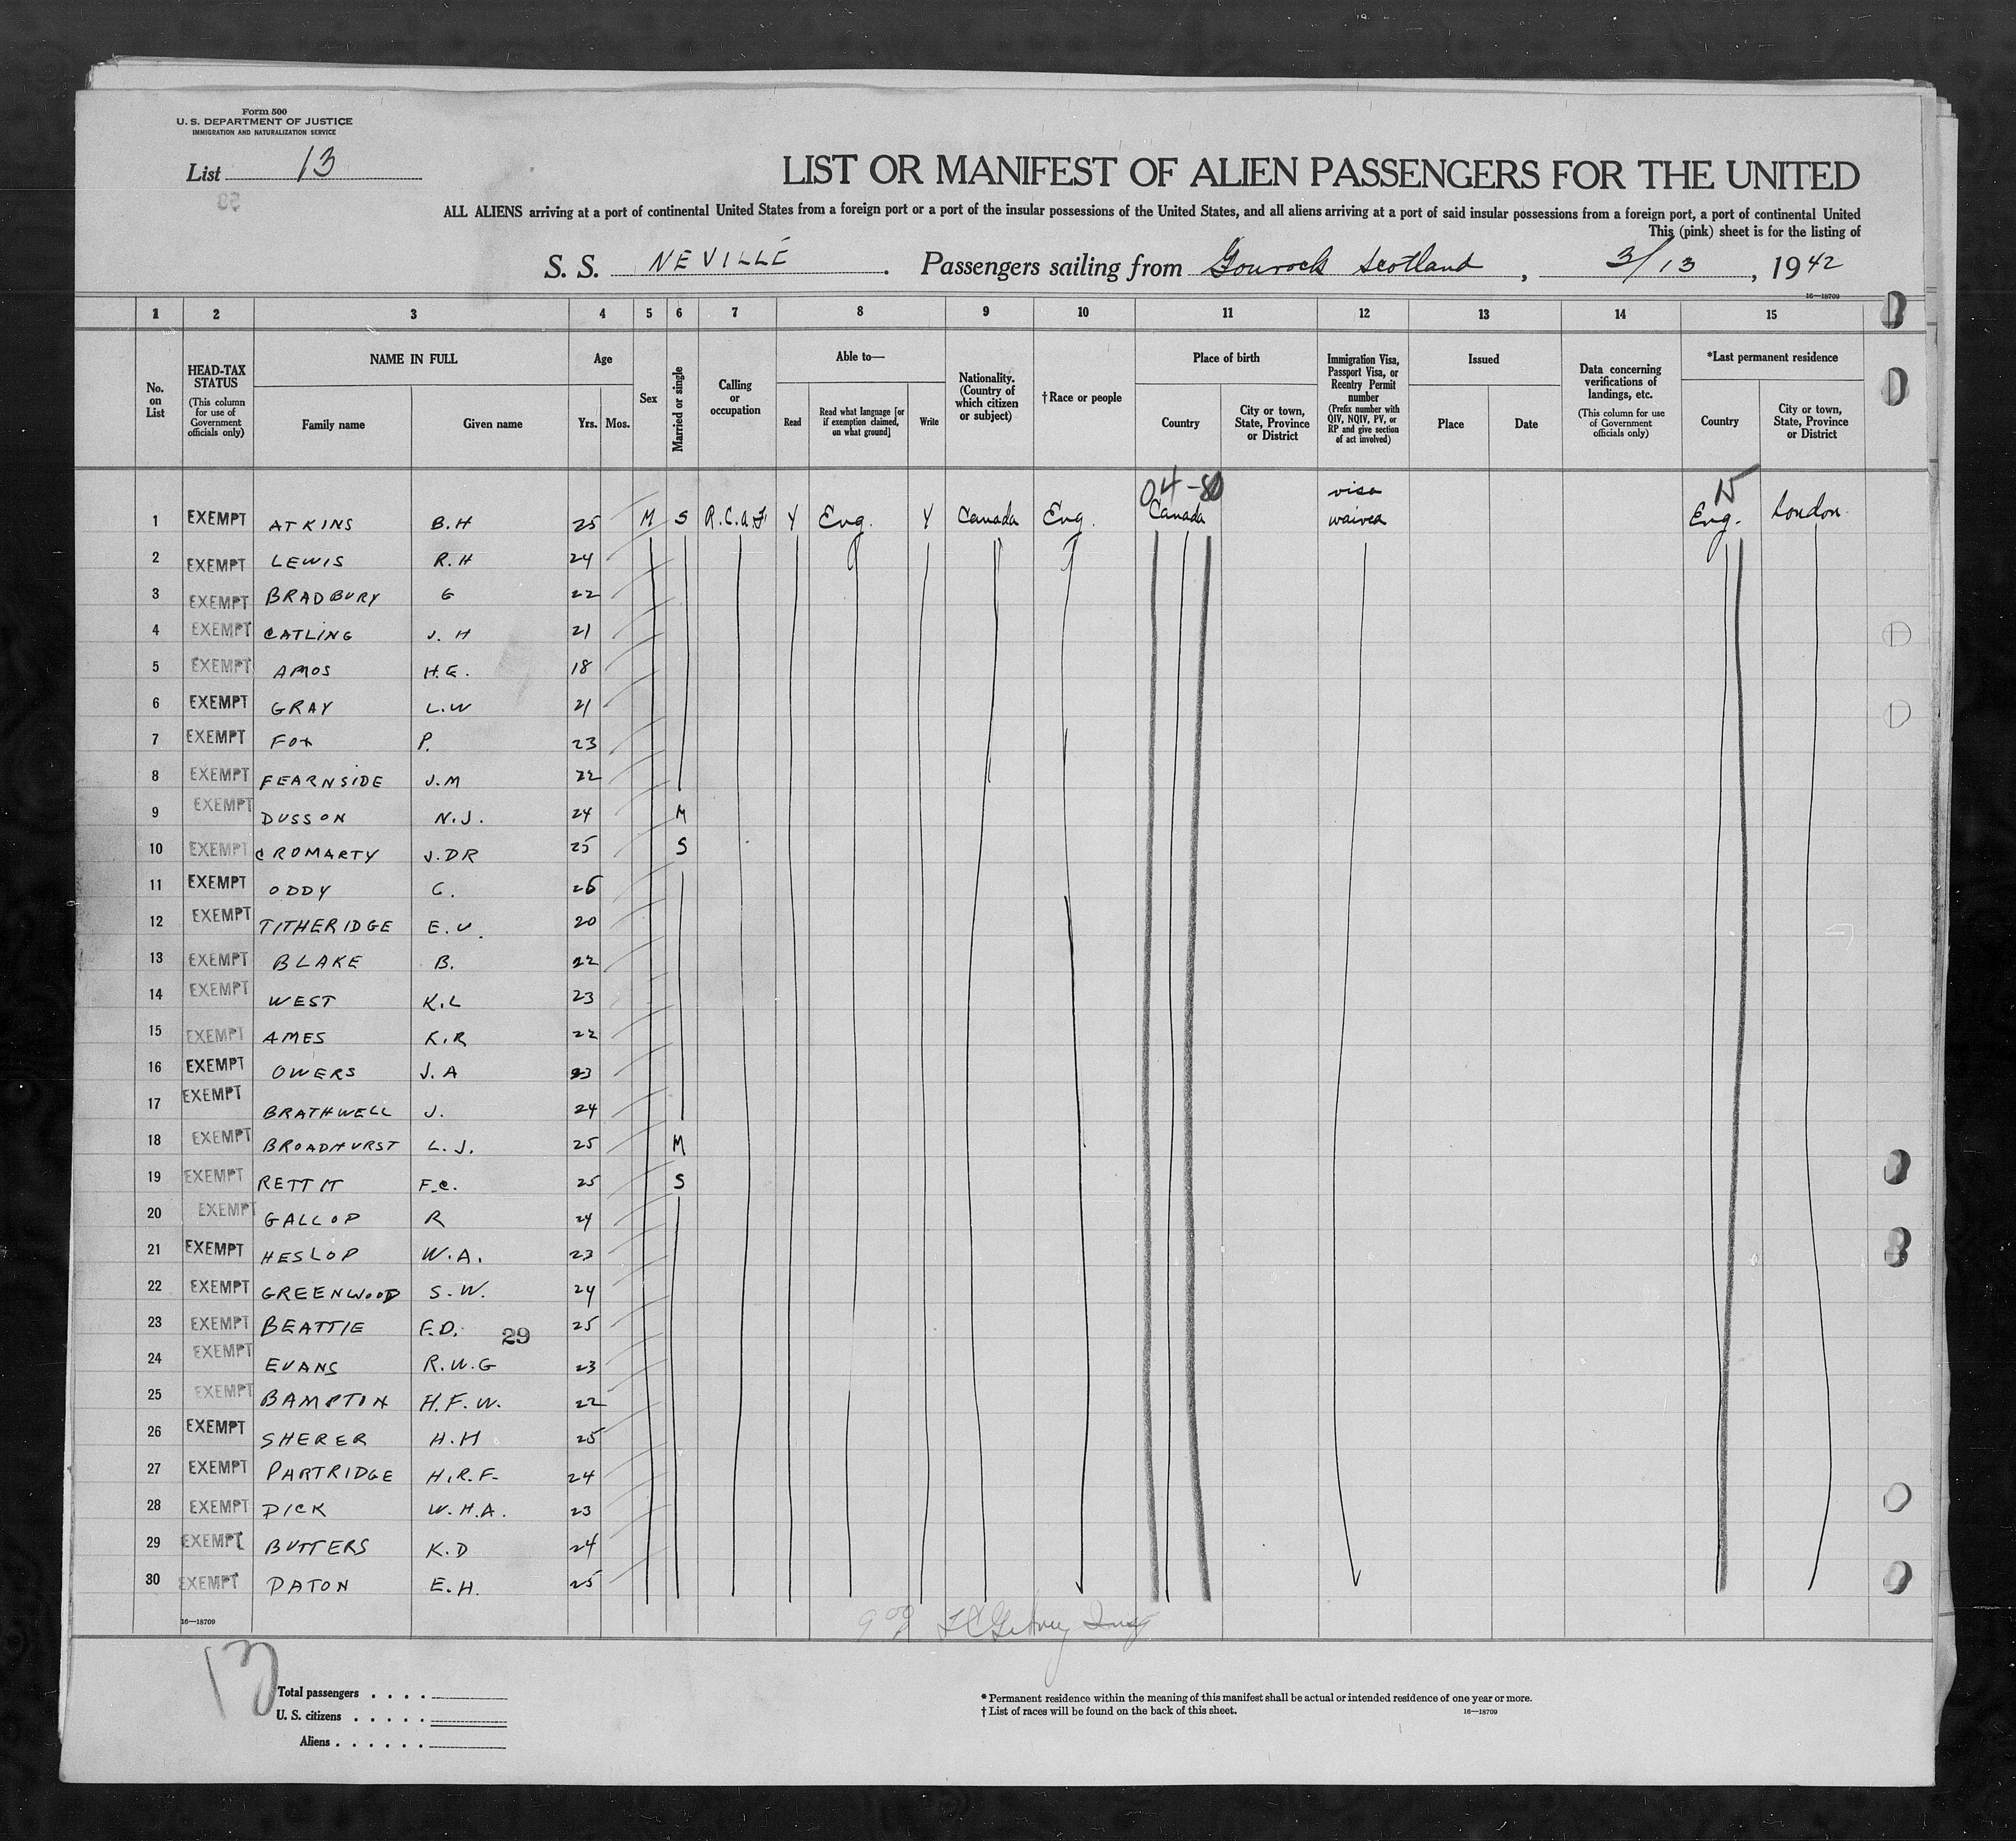 Form 500
U. S. DEPARTMENT OF JUSTICE
IMMIGRATION AND NATURALIZATION SERVICE
List 13
LIST OR MANIFEST OF ALIEN PASSENGERS FOR THE UNITED
ALL ALIENS arriving at a port of continental United States from a foreign port or a port of the insular possessions of the United States, and all aliens arriving at a port of said insular possessions from a foreign port, a port of continental United
This (pink) sheet is for the listing of
S. S. NEVILLE . Passengers sailing from Gourock Scotland , 3/13 , 1942
16—18709
1 2 3 4 5 6 7 8 9 10 11 12 13 14 15
No. on List
HEAD-TAX STATUS (This column for use of Government officials only)
NAME IN FULL
Family name Given name
Age
Yrs. Mos.
Sex
Married or single
Calling or occupation
Able to—
Read Read what language [or if exemption claimed, on what ground] Write
Nationality. (Country of which citizen or subject)
†Race or people
Place of birth
Country City or town, State, Province or District
Immigration Visa, Passport Visa, or Reentry Permit number (Prefix number with QIV, NQIV, PV, or RP and give section of act involved)
Issued
Place Date
Data concerning verifications of landings, etc. (This column for use of Government officials only)
*Last permanent residence
Country City or town, State, Province or District
04-80 visa 15
1 EXEMPT ATKINS B.H 25 M S R.C.A.F. Y Eng. Y Canada Eng. Canada waived Eng. London
2 EXEMPT LEWIS R.H 24
3 EXEMPT BRADBURY G 22
4 EXEMPT CATLING J. H 21
5 EXEMPT AMOS H.E. 18
6 EXEMPT GRAY L.W 21
7 EXEMPT FOX P. 23
8 EXEMPT FEARNSIDE J.M 22
9 EXEMPT DUSSON N.J. 24 M
10 EXEMPT CROMARTY J.DR 25 S
11 EXEMPT ODDY C. 26
12 EXEMPT TITHERIDGE E.V. 20
13 EXEMPT BLAKE B. 22
14 EXEMPT WEST K.L 23
15 EXEMPT AMES K.R 22
16 EXEMPT OWERS J.A 23
17 EXEMPT BRATHWELL J. 24
18 EXEMPT BROADHURST L.J. 25 M
19 EXEMPT RETTIT F.C. 25 S
20 EXEMPT GALLOP R 24
21 EXEMPT HESLOP W.A. 23
22 EXEMPT GREENWOOD S.W. 24
23 EXEMPT BEATTIE F.D. 25
29
24 EXEMPT EVANS R.W.G 23
25 EXEMPT BAMPTON H.F.W. 22
26 EXEMPT SHERER H.H 25
27 EXEMPT PARTRIDGE H.R.F. 24
28 EXEMPT DICK W.H.A. 23
29 EXEMPT BUTTERS K.D 24
30 EXEMPT PATON E.H. 25
16—18709
13
Total passengers . . . .
U. S. citizens . . . . .
Aliens . . . . . .
* Permanent residence within the meaning of this manifest shall be actual or intended residence of one year or more.
† List of races will be found on the back of this sheet. 16—18709